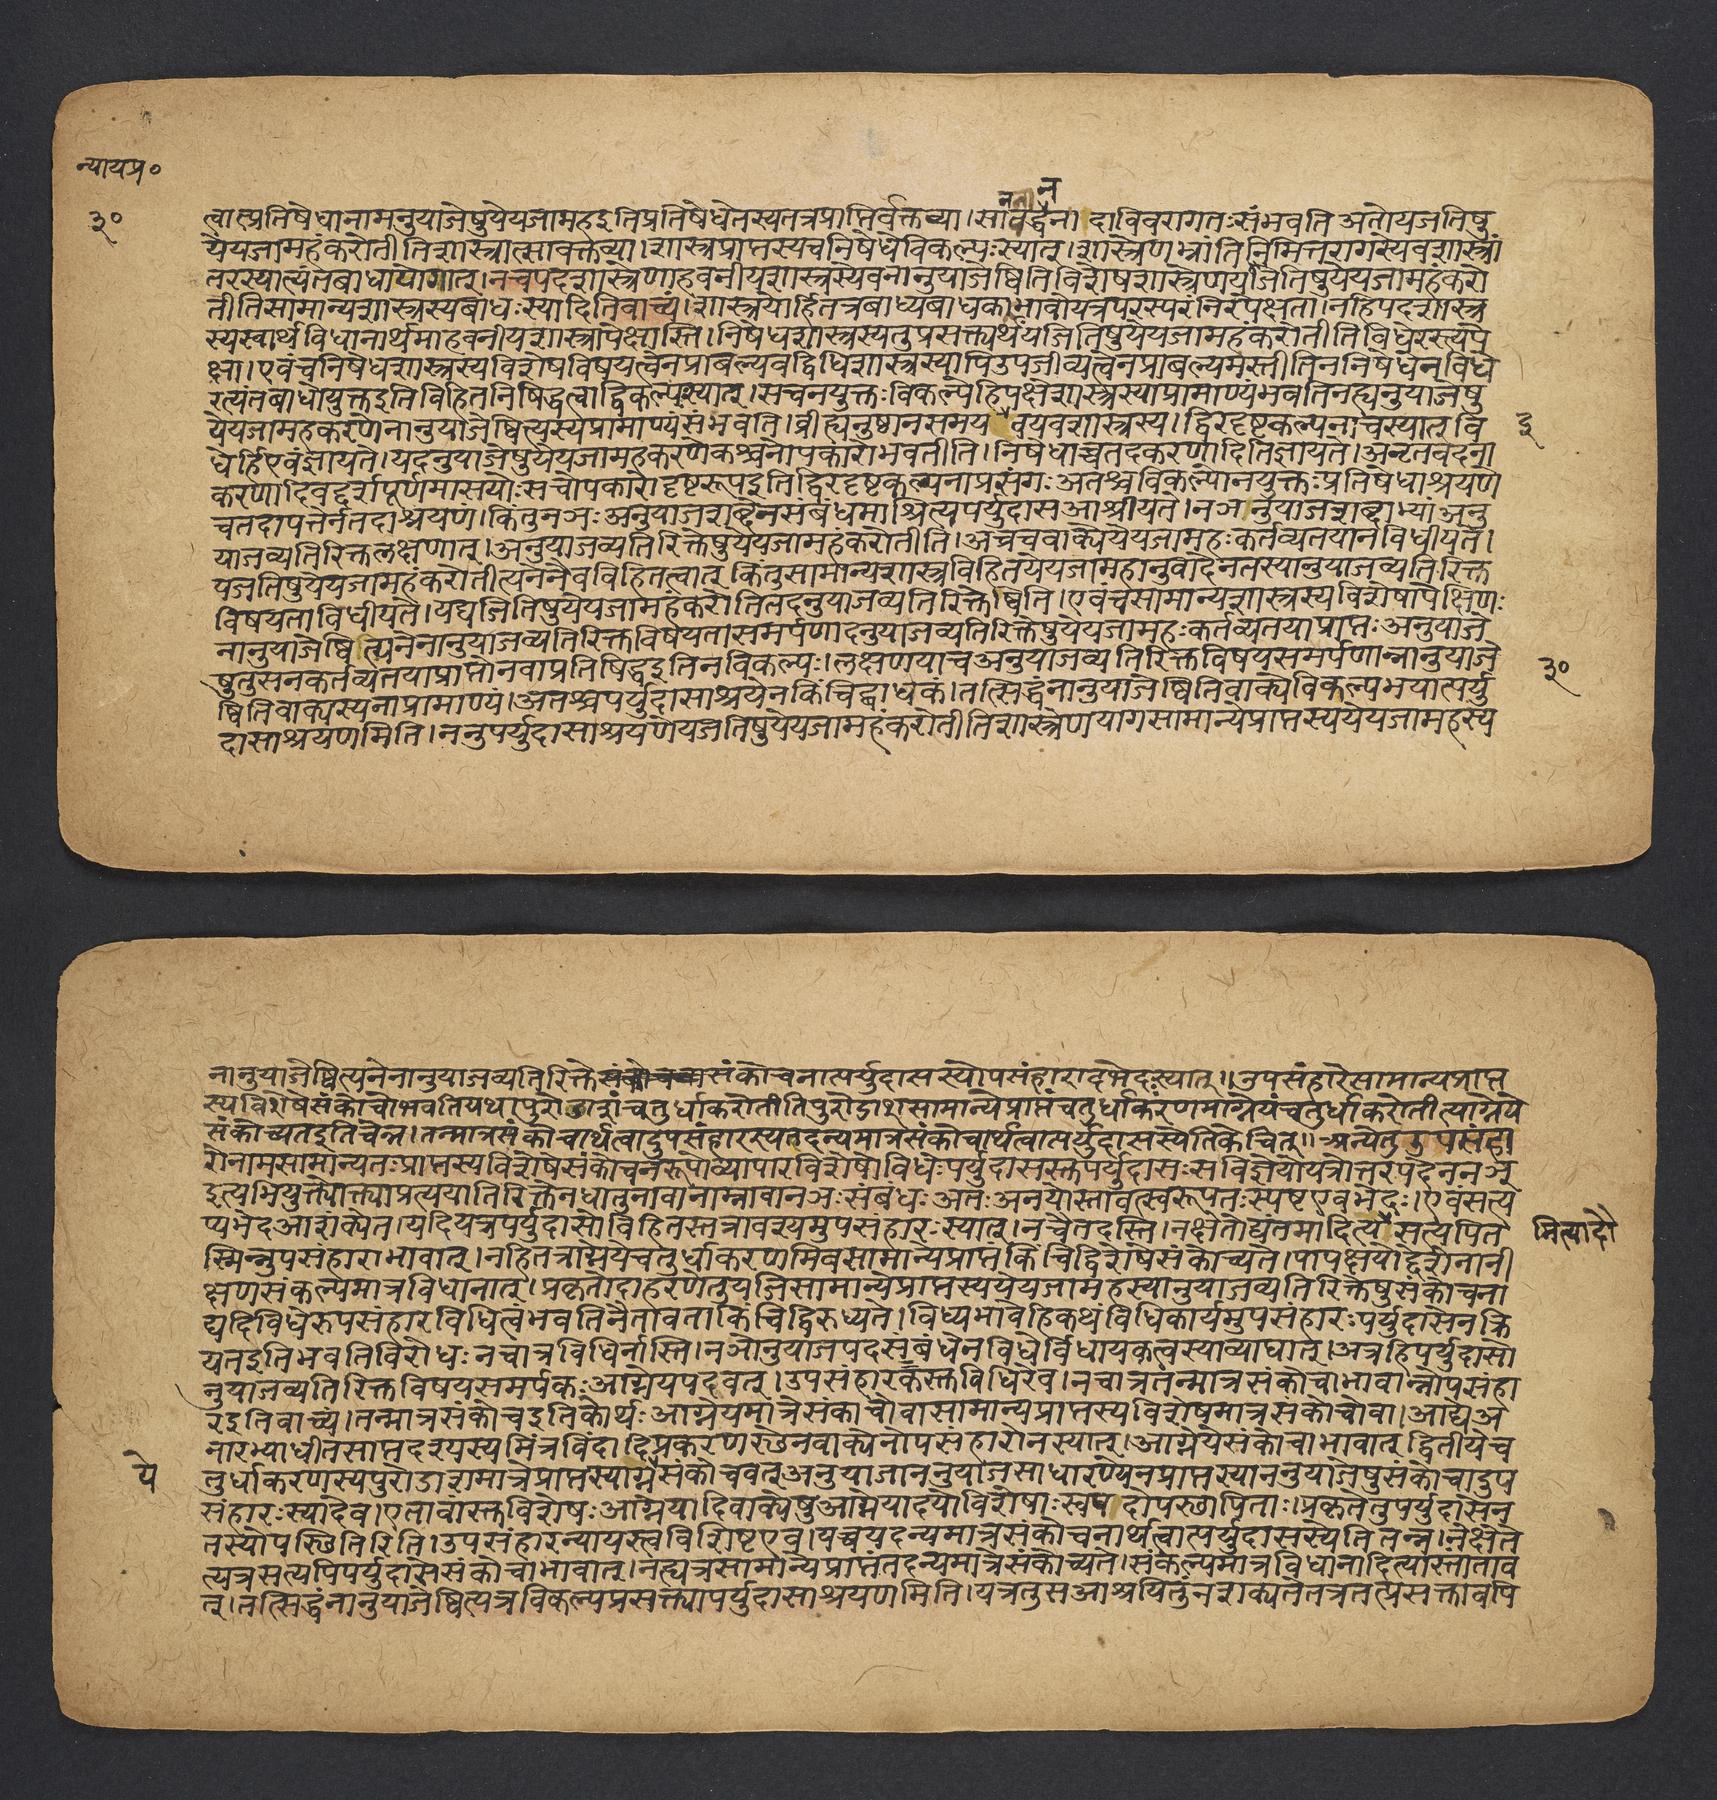 न्यायप्र०
३०
न न
त्वात्प्रतिषेधानामनुयाजेषुयेयजामहइतिप्रतिषेधेतस्यतत्रप्राप्तिर्वक्तव्या।साचद्धनादाविवरागतःसंभवति अतोयजतिषु
येयजामहंकरोतीतिशास्त्रात्सावक्तव्या।शास्त्रप्राप्तस्यचनिषेधेविकल्पःस्यात्।शास्त्रेणभ्रांतिनिमित्तरागस्येवशास्त्रां
तरस्यात्यंतबाधायोगात्।नचपदशास्त्रेणाहवनीयशास्त्रस्येवनानुयाजेष्वितिविशेषशास्त्रेणयजतिषुयेयजामहंकरो
तीतिसामान्यशास्त्रस्यबाधःस्यादितिवाच्यं।शास्त्रयोर्हितत्रबाध्यबाधकाभावोयत्रपरस्परंनिरपेक्षता।नहिपदशास्त्र
स्यस्वार्थविधानार्थमाहवनीयशास्त्रापेक्षास्ति।निषेधशास्त्रस्यतुप्रसक्त्यर्थंयजतिषुयेयजामहंकरोतीतिविधेरस्त्यपे
क्षा।एवंचनिषेधशास्त्रस्यविशेषविषयत्वेनप्राबल्यवद्विधिशास्त्रस्यापिउपजीव्यत्वेनप्राबल्यमस्तीतिननिषेधेनविधे
रत्यंतबाधोयुक्तइतिविहितनिषिद्धत्वाद्विकल्पःस्यात्।सचनयुक्तःविकल्पेहिपक्षेशास्त्रस्याप्रामाण्यंभवतिनह्यनुयाजेषु
येयजामहकरणेनानुयाजेष्वित्यस्यप्रामाण्यंसंभवति।व्रीह्यनुष्ठानसमयेवयवशास्त्रस्य।द्विरदृष्टकल्पनाचस्यात् वि
धेर्हिएवंज्ञायते।यदनुयाजेषुयेयजामहकरणेकश्चनोपकारोभवतीति।निषेधाच्चतदकरणादितिज्ञायते।अनृतवदना
करणादिवदर्शपूर्णमासयोःसचोपकारोदृष्टरूपइतिद्विरदृष्टकल्पनाप्रसंगःअतश्चविकल्पोनयुक्तःप्रतिषेधाश्रयणे
चतदापत्तेर्नतदाश्रयणं।किंतुनञःअनुयाजशब्देनसंबंधमाश्रित्यपर्युदासआश्रीयते।नञानुयाजशब्दाभ्यांअनु
याजव्यतिरिक्तलक्षणात्।अनुयाजव्यतिरिक्तेषुयेयजामहंकरोतीति।अत्रचवाक्येयेयजामहःकर्तव्यतयानविधीयते।
यजतिषुयेयजामहंकरोतीत्यनेनैवविहितत्वात् किंतुसामान्यशास्त्रविहितयेयजामहानुवादेनतस्यानुयाजव्यतिरिक्त
विषयताविधीयते।यद्यजतिषुयेयजामहंकरोतितदनुयाजव्यतिरिक्तेष्विति।एवंचसामान्यशास्त्रस्यविशेषापेक्षिणः
नानुयाजेष्वित्यनेनानुयाजव्यतिरिक्तविषयतासमर्पणादनुयाजव्यतिरिक्तेषुयेयजामहःकर्तव्यतयाप्राप्तःअनुयाजे
षुतुसनकर्तव्यतयाप्राप्तोनवाप्रतिषिद्धइतिनविकल्पः।लक्षणयाचअनुयाजव्यतिरिक्तविषयसमर्पणान्नानुयाजे
ष्वितिवाक्यस्यनाप्रामाण्यं।अतश्चपर्युदासाश्रयेनकिंचिद्बाधकं।तत्सिद्धंनानुयाजेष्वितिवाक्येविकल्पभयात्पर्यु
दासाश्रयणमिति।ननुपर्युदासाश्रयणेयजतिषुयेयजामहंकरोतीतिशास्त्रेणयागसामान्येप्राप्तस्ययेयजामहस्य
३०
नानुयाजेष्वित्यनेनानुयाजव्यतिरिक्तेसंकोचनात्पर्युदासस्योपसंहारादभेदःस्यात्।।उपसंहारेसामान्यप्राप्त
स्यविशेषेसंकोचोभवतियथापुरोडाशंचतुर्धाकरोतीतिपुरोडाशसामान्येप्राप्तंचतुर्धाकरणमाग्नेयंचतुर्धाकरोतीत्याग्नेये
संकोच्यतइतिचेन्न।तन्मात्रसंकोचार्थत्वादुपसंहारस्यतदन्यमात्रसंकोचार्थत्वात्पर्युदासस्येतिकेचित्।।अन्येतुउपसंहा
रोनामसामान्यतःप्राप्तस्यविशेषेसंकोचनरूपोव्यापारविशेषोविधेःपर्युदासस्तपर्युदासःसविज्ञेयोयत्रोत्तरपदेननञ्
इत्यभियुक्तोक्त्याप्रत्ययातिरिक्तेनधातुनावानाम्नावानञःसंबंधःअतःअनयोस्तावत्स्वरूपतःस्पष्टएवभेदः।एवंसत्य
प्यभेदआशंक्येत।यदियत्रपर्युदासोविहितस्तत्रावश्यमुपसंहारःस्यात्।नचैतदस्ति।नेक्षेतोद्यंतमादित्यंसत्यपित
मित्यादौ
स्मिन्नुपसंहाराभावात्।नहितत्राग्नेयेचतुर्धाकरणमिवसामान्येप्राप्तंकिंचिद्विशेषेसंकोच्यते।पापक्षयोद्देशेनानी
क्षणसंकल्पमात्रविधानात्।प्रकृतोदाहरणेतुयजिसामान्येप्राप्तस्ययेयजामहस्यानुयाजव्यतिरिक्तेषुसंकोचना
द्यदिविधेरुपसंहारविधित्वंभवतिनैतावताकिंचिद्विरुध्यते।विध्यभावेहिकथंविधिकार्यमुपसंहारःपर्युदासेनक्रि
यतइतिभवतिविरोधःनचात्रविधिर्नास्ति।नञोनुयाजपदसंबंधेनविधेर्विधायकत्वस्याव्याघातात्।अत्रहिपर्युदासो
नुयाजव्यतिरिक्तविषयसमर्पकःआग्नेयपदवत्।उपसंहारकस्तविधिरेव।नचात्रतन्मात्रसंकोचाभावान्नोपसंहा
रइतिवाच्यं।तन्मात्रसंकोचइतिकोर्थःआग्नेयमात्रेसंकोचोवासामान्यप्राप्तस्यविशेषमात्रसंकोचोवा।आद्येअ
नारभ्याधीतसाप्तदश्यस्यमित्रविंदादिप्रकरणस्थेनवाक्येनोपसंहारोनस्यात्।आग्नेयेसंकोचाभावात् द्वितीयेच
ये
तुर्धाकरणस्यपुरोडाशमात्रेप्राप्तस्याग्नेसंकोचवत्अनुयाजाननुयाजसाधारण्येनप्राप्तस्याननुयाजेषुसंकोचादुप
संहारःस्यादेव।एतावांस्तविशेषःआग्नेयादिवाक्येषुआग्नेयादयोविशेषाःस्वपदोपस्थापिताः।प्रकृतेतुपर्युदासेन
तस्योपस्थितिरिति।उपसंहारन्यायस्त्वविशिष्टएव।यच्चयदन्यमात्रसंकोचनार्थत्वात्पर्युदासस्येति तन्न।नेक्षेते
त्यत्रसत्यपिपर्युदासेसंकोचाभावात्।नह्यत्रसामान्येप्राप्तंतदन्यमात्रेसंकोच्यते।संकल्पमात्रविधानादित्यास्तांताव
त्।तत्सिद्धंनानुयाजेष्वित्यत्रविकल्पप्रसक्त्यापर्युदासाश्रयणमिति।यत्रतुसआश्रयितुंनशक्यतेतत्रतत्प्रसक्तावपि